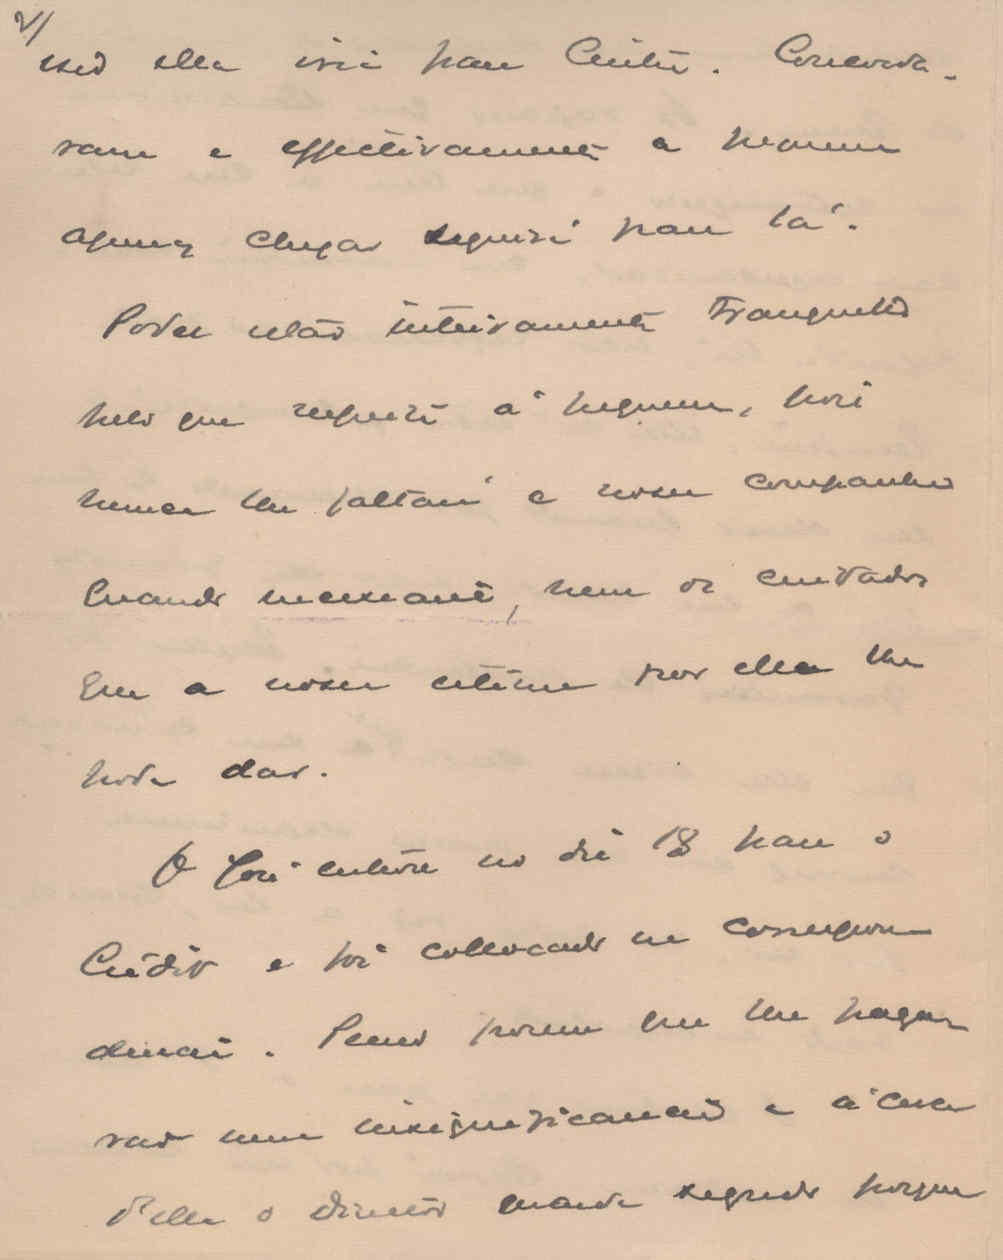 2/
isso ella iria para Cintra. Concorda-
ram e effectivamente a mesma
apenas chegar seguirá para lá.
Podes estar inteiramente tranquillo
pelo que respeita á pequena, pois
nunca lhe faltará a nossa companhia
quando necessario, nem os cuidados
que a nossa estima por ella lhe
pode dar.
O José entrou no dia 18 para o
Crédito e foi collocado na correspon-
dencia. Penso porem que lhe pagar
rão uma insignificancia e á cerca
d'elle o director guarda segredo porque